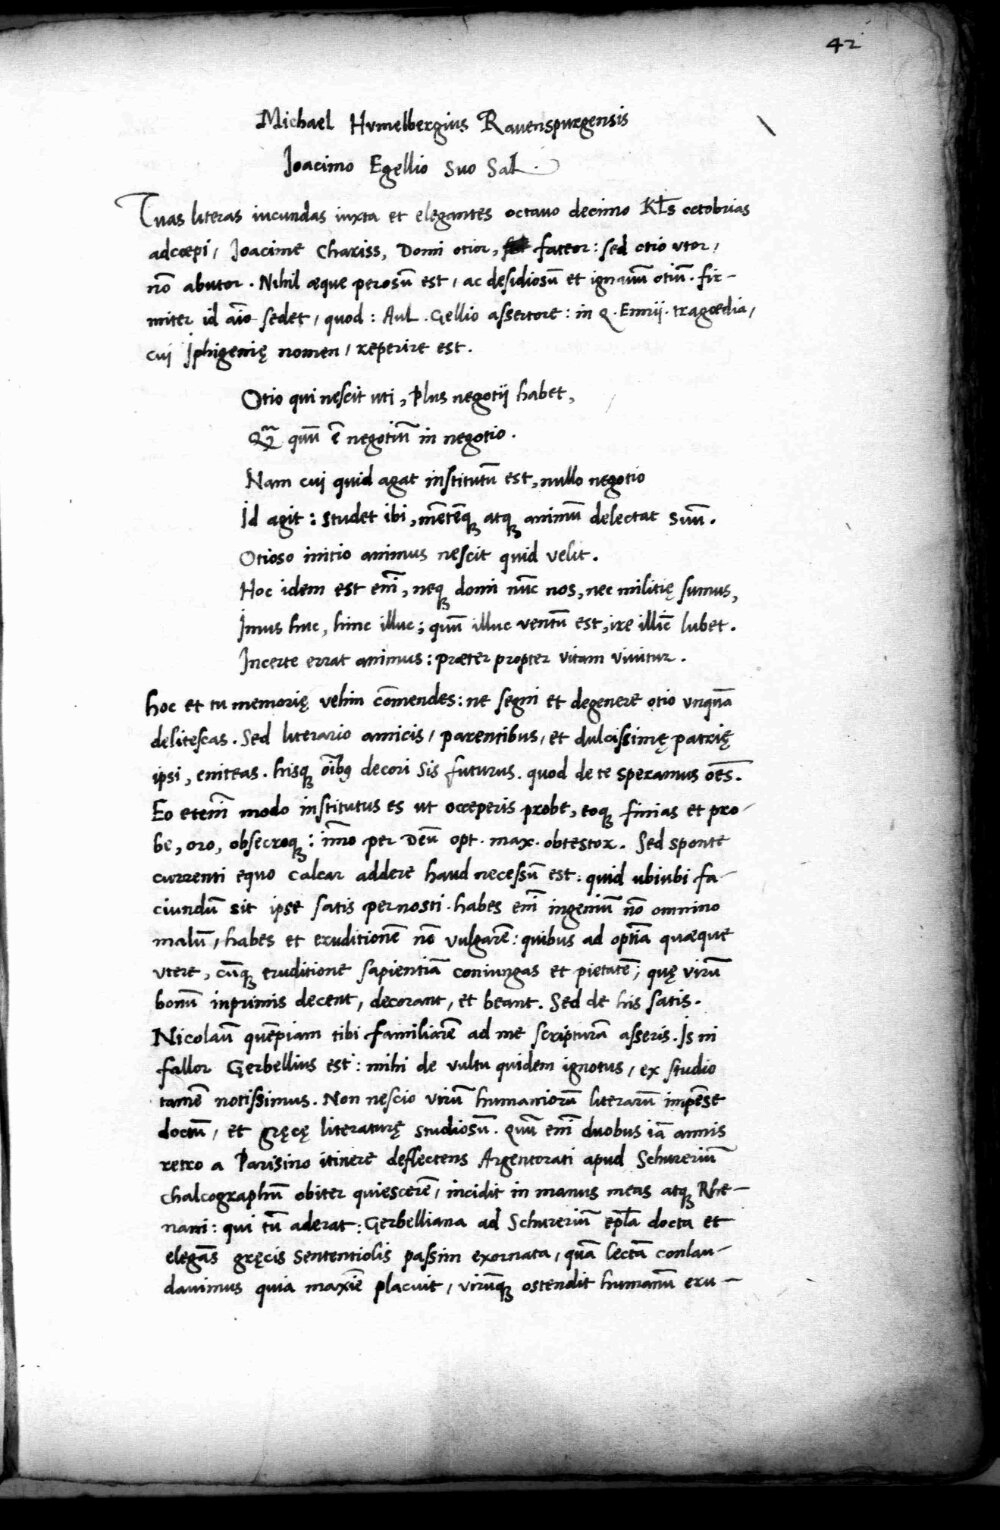 42
Michael Hvmelbergius Ravenspurgensis
Joacimo Egellio Suo Sal.
Tuas literas iucundas iuxta et elegantes octauo decimo Kl̄s octobrias
adcœpi, Joacime Chariss, Domi otior, fateor: sed otio vtor,
nō abutor. Nihil æque perosū est, ac desidiosū et ignauū otiū. fir-
miter id aīo sedet, quod: Aul. Gellio assertore: in Q. Ennij. tragœdia,
cui Jphigenię nomen, reperire est.
Otio qui nescit uti, Plus negotij habet,
Qm̄ quū ē negotiū in negotio.
Nam cui quid agat institutū est, nullo negotio
Id agit: studet ibi, mētēqꝫ atqꝫ animū delectat suū.
Otioso initio animus nescit quid velit.
Hoc idem est em̄, neqꝫ domi nūc nos, nec militię sumus,
Jmus huc, hinc illuc; quū illuc ventū est, ire illīc lubet.
Incerte errat animus: præter propter vitam viuitur.
hoc et tu memorię velim cōmendes: ne segni et degenere otio vnquā
delitescas. Sed literario amicis, parentibus, et dulcissimę patrię
ipsi, eniteas. hisqꝫ oībꝫ decori sis futurus. quod de te speramus oēs.
Eo etem̄ modo institutus es ut occeperis probe, eoqꝫ finias et pro-
be, oro, obsecroqꝫ: īmo per Deū opt. max. obtestor. Sed sponte
currenti equo calcar addere haud necessū est: quid ubiubi fa-
ciundū sit ipse satis pernosti. habes em̄ ingeniū nō omnino
malū, habes et eruditionē nō vulgarē: quibus ad optīa quæque
vtere, cūqꝫ eruditione sapientiā coniungas et pietatē; quę virū
bonū inprimis decent, decorant, et beant. Sed de his satis.
Nicolaū quēpiam tibi familiarē ad me scripturā asseris. Js ni
fallor Gerbellius est: mihi de vultu quidem ignotus, ex studio
tamē notissimus. Non nescio virū humaniorū literarū impēse
doctū, et gręcę literaturę studiosū. quū em̄ duobus iā annis
retro a Parisino itinere deflectens Argentorati apud Schureriū
chalcographū obiter quiescerē, incidit in manus meas atqꝫ Rhe-
nani: qui tū aderat: Gerbelliana ad Schureriū ep̄la docta et
elegās gręcis sententiolis passim exornata, quā lectā conlau-
dauimus quia maxīe placuit, virūqꝫ ostendit humanū eru-